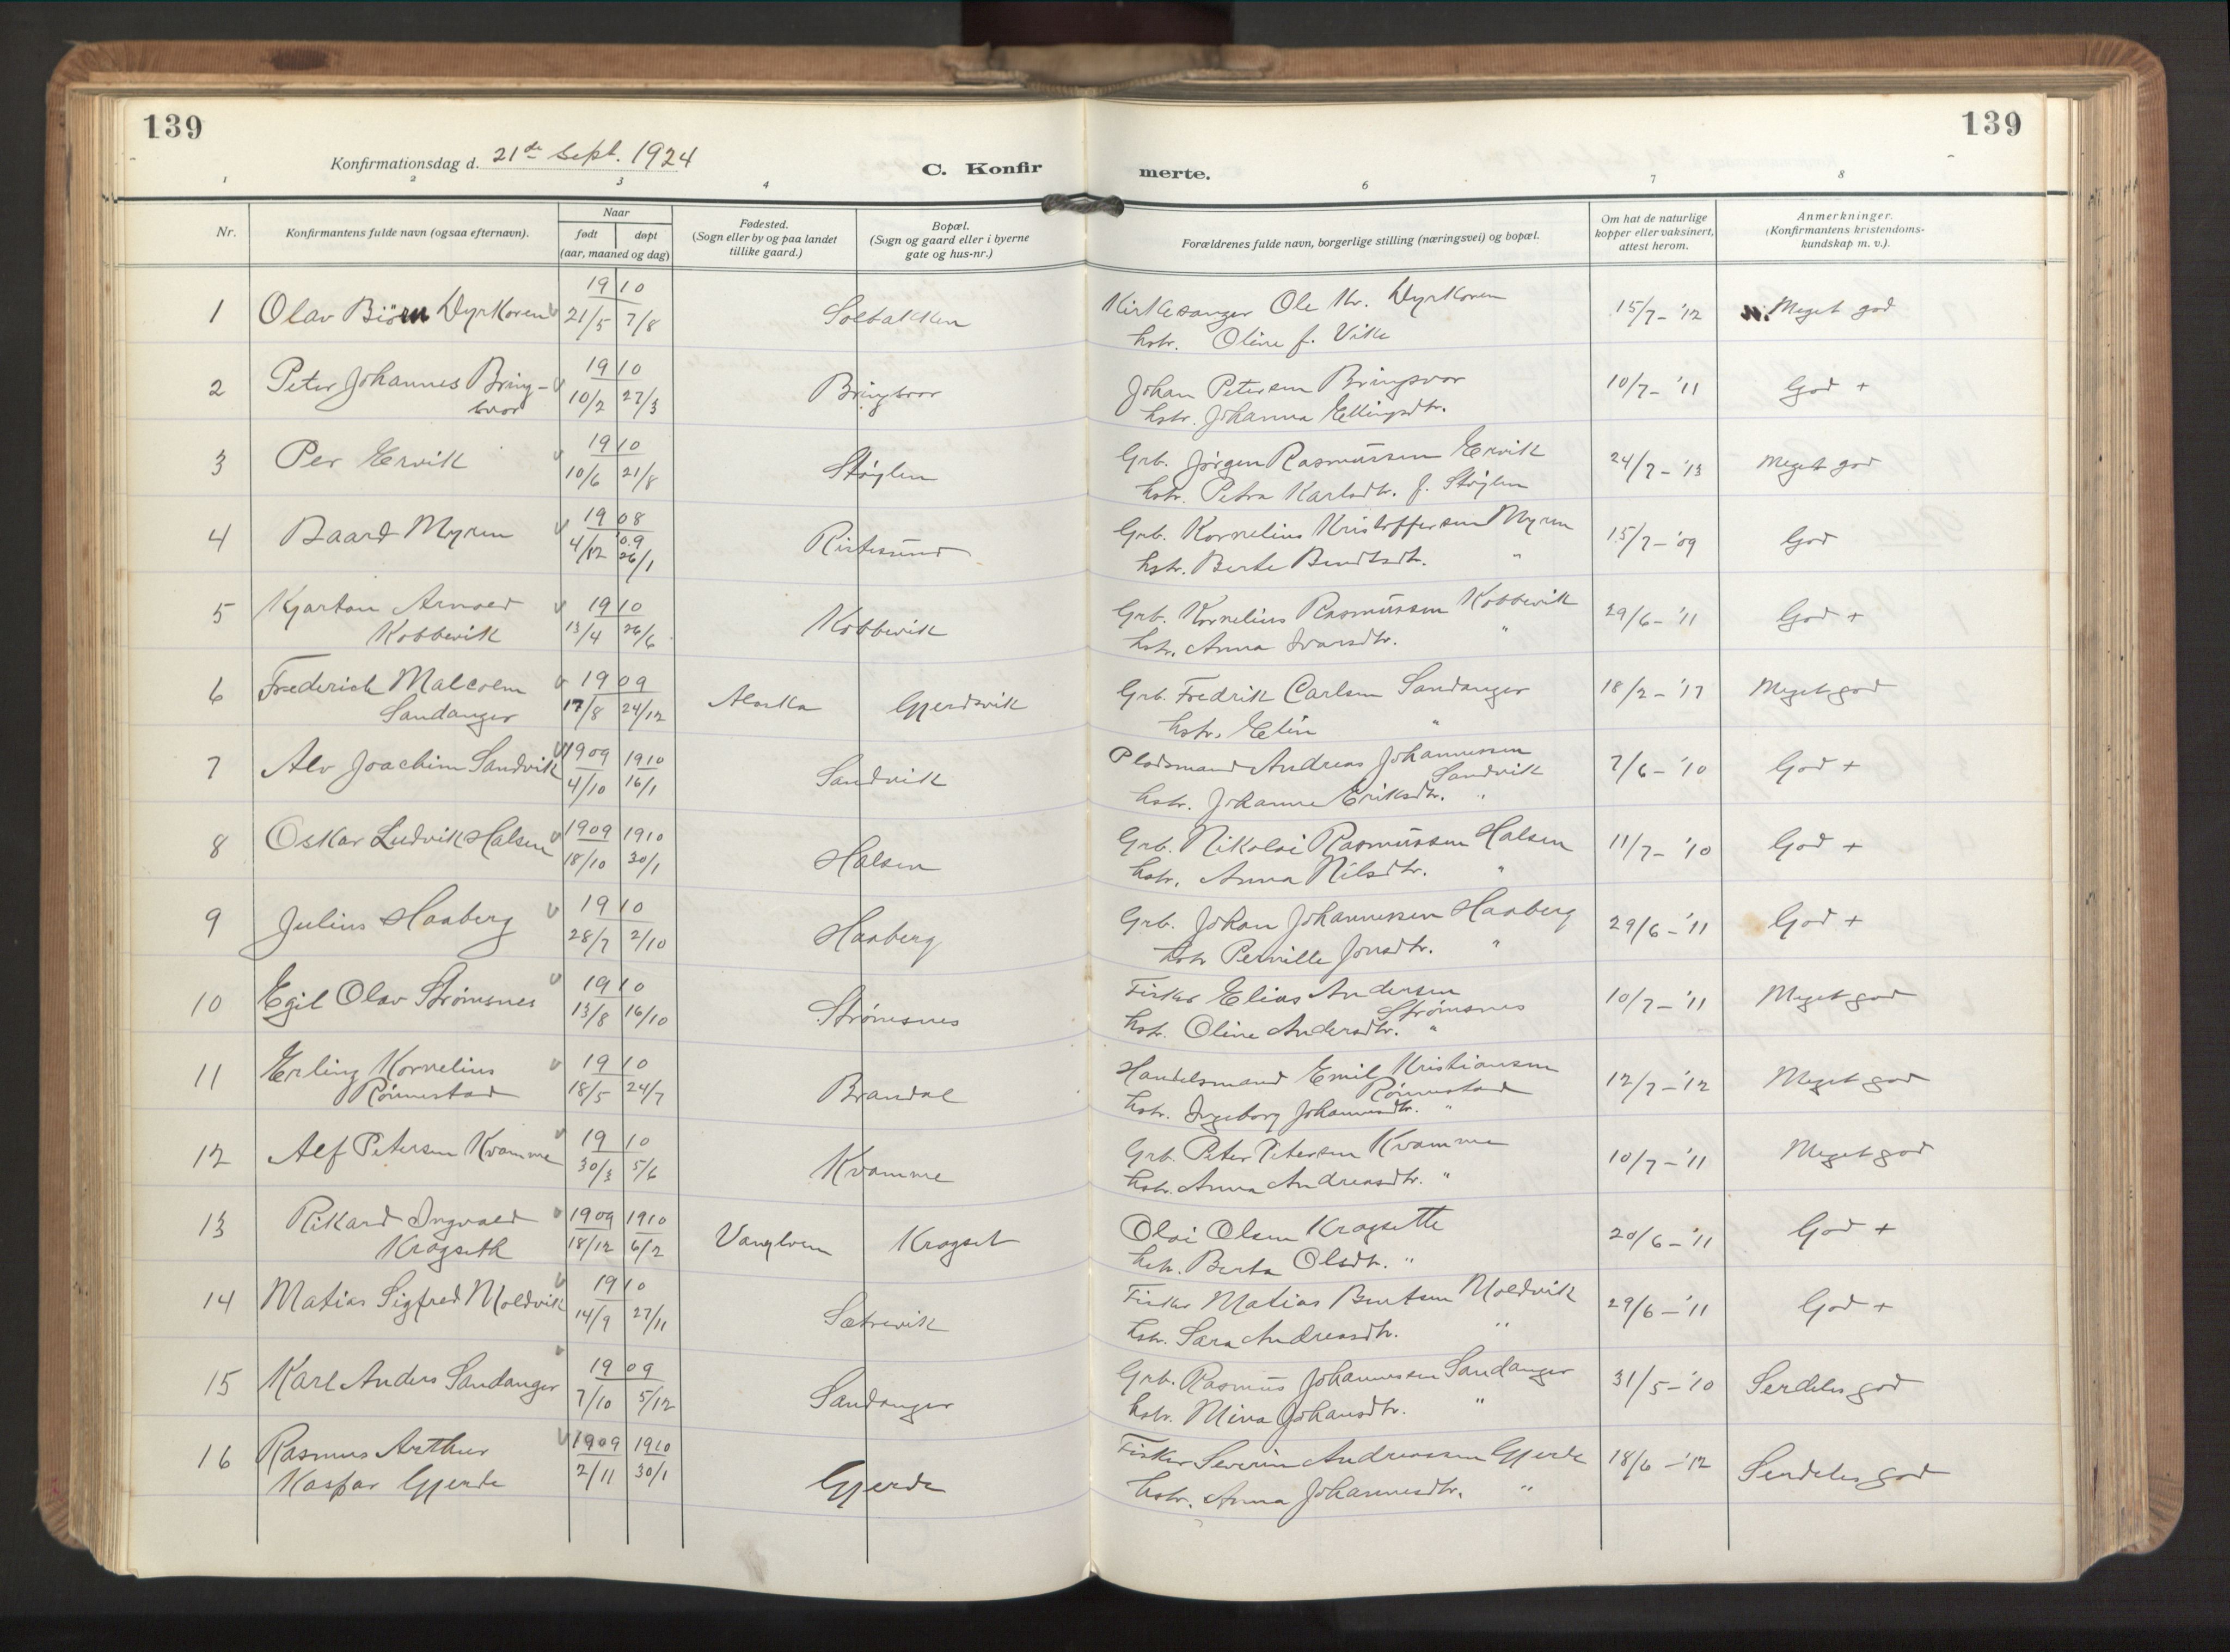 139
139
Konfirmationsdag d. 21de Sept. 1924
C. Konfirmerte.
1 2 3 4 6 7 8
Nr.
Konfirmantens fulde navn (ogsaa efternavn).
Naar
født
døpt
(aar, maaned og dag)
Fødested.
(Sogn eller by og paa landet
tillike gaard.)
Bopæl.
(Sogn og gaard eller i byerne
gate og hus-nr.)
Forældrenes fulde navn, borgerlige stilling (næringsvei) og bopæl.
Om hat de naturlige
kopper eller vaksinert,
attest herom.
Anmerkninger.
(Konfirmantens kristendoms-
kundskap m. v.).
1 Olav Biörn Dyrkoren v 1910 21/5 7/8 Solbakken Kirkesanger Ole Kr. Dyrkoren 15/7-'12 Meget god
hstr. Oline f. Vike
2 Peter Johannes Bring- v 1910 10/2 27/3 Bringsvor Johan Petersen Bringsvor 10/7-'11 God +
svor hstr. Johanna Ellingsdtr.
3 Per Ervik v 1910 10/6 21/8 Støylen Grb. Jørgen Rasmussen Ervik 24/7-'13 Meget god
hstr. Petra Karlsdtr. f. Støylen
4 Baard Myren v 1908 4/12 09 26/1 Ristesund Grb. Kornelius Kristoffersen Myren 15/7-'09 God
hstr. Berte Bendtsdt. "
5 Kjartan Arnold v 1910 13/4 26/6 Kobbevik Grb. Kornelius Rasmussen Kobbevik 29/6-'11 God +
Kobbevik hstr. Anna Ivarsdtr. "
6 Frederick Malcolm v 1909 17/8 24/12 Alaska Gjerdsvik Grb. Fredrik Carlsen Sandanger 18/2-'17 Meget god
Sandanger hstr. Elin "
7 Alv Joachim Sandvik v 1909 4/10 1910 16/1 Sandvik Pladsmand Andreas Johannessen 7/6-'10 God +
Sandvik
hstr. Johanne Eriksdtr. "
8 Oskar Ludvik Halsen v 1909 18/10 1910 30/1 Halsen Grb. Nikolai Rasmussen Halsen 11/7-'10 God +
hstr. Anna Nilsdtr. "
9 Julius Haaberg v 1910 28/7 2/10 Haaberg Grb. Johan Johannessen Haaberg 29/6-'11 God +
hstr Pernille Jonsdtr. "
10 Egil Olav Strømsnes v 1910 13/8 16/10 Strømsnes Fisker Elias Andersen 10/7-'11 Meget god
Strømsnes
hstr. Oline Andersdtr. "
11 Erling Kornelius v 1910 18/5 24/7 Brandal Handelsmand Emil Kristiansen 12/7-'12 Meget god
Rönnestad Rönnestad
hstr. Ingeborg Johannesdtr. "
12 Alf Petersen Kvamme v 1910 30/3 5/6 Kvamme Grb. Peter Petersen Kvamme 10/7-'11 Meget god
hstr. Anna Andreasdtr. "
13 Rikard Ingvald v 1909 18/12 1910 6/2 Vanylven Krogset Olai Olsen Krogsette 20/6-'11 God +
Krogseth hstr. Berta Olsdtr. "
14 Matias Sigfred Moldvik v 1910 14/9 27/11 Sætrevik Fisker Matias Bentsen Moldvik 29/6-'11 God +
hstr. Sara Andreasdtr. "
15 Karl Anders Sandanger v 1909 7/10 5/12 Sandanger Grb. Rasmus Johannessen Sandanger 31/5-'10 Serdeles god
hstr. Mina Johansdtr. "
16 Rasmus Arthur v 1909 2/11 1910 30/1 Gjerde Fisker Severin Andreassen Gjerde 18/6-'12 Serdeles god
Kaspar Gjerde hstr. Anna Johannesdtr. "